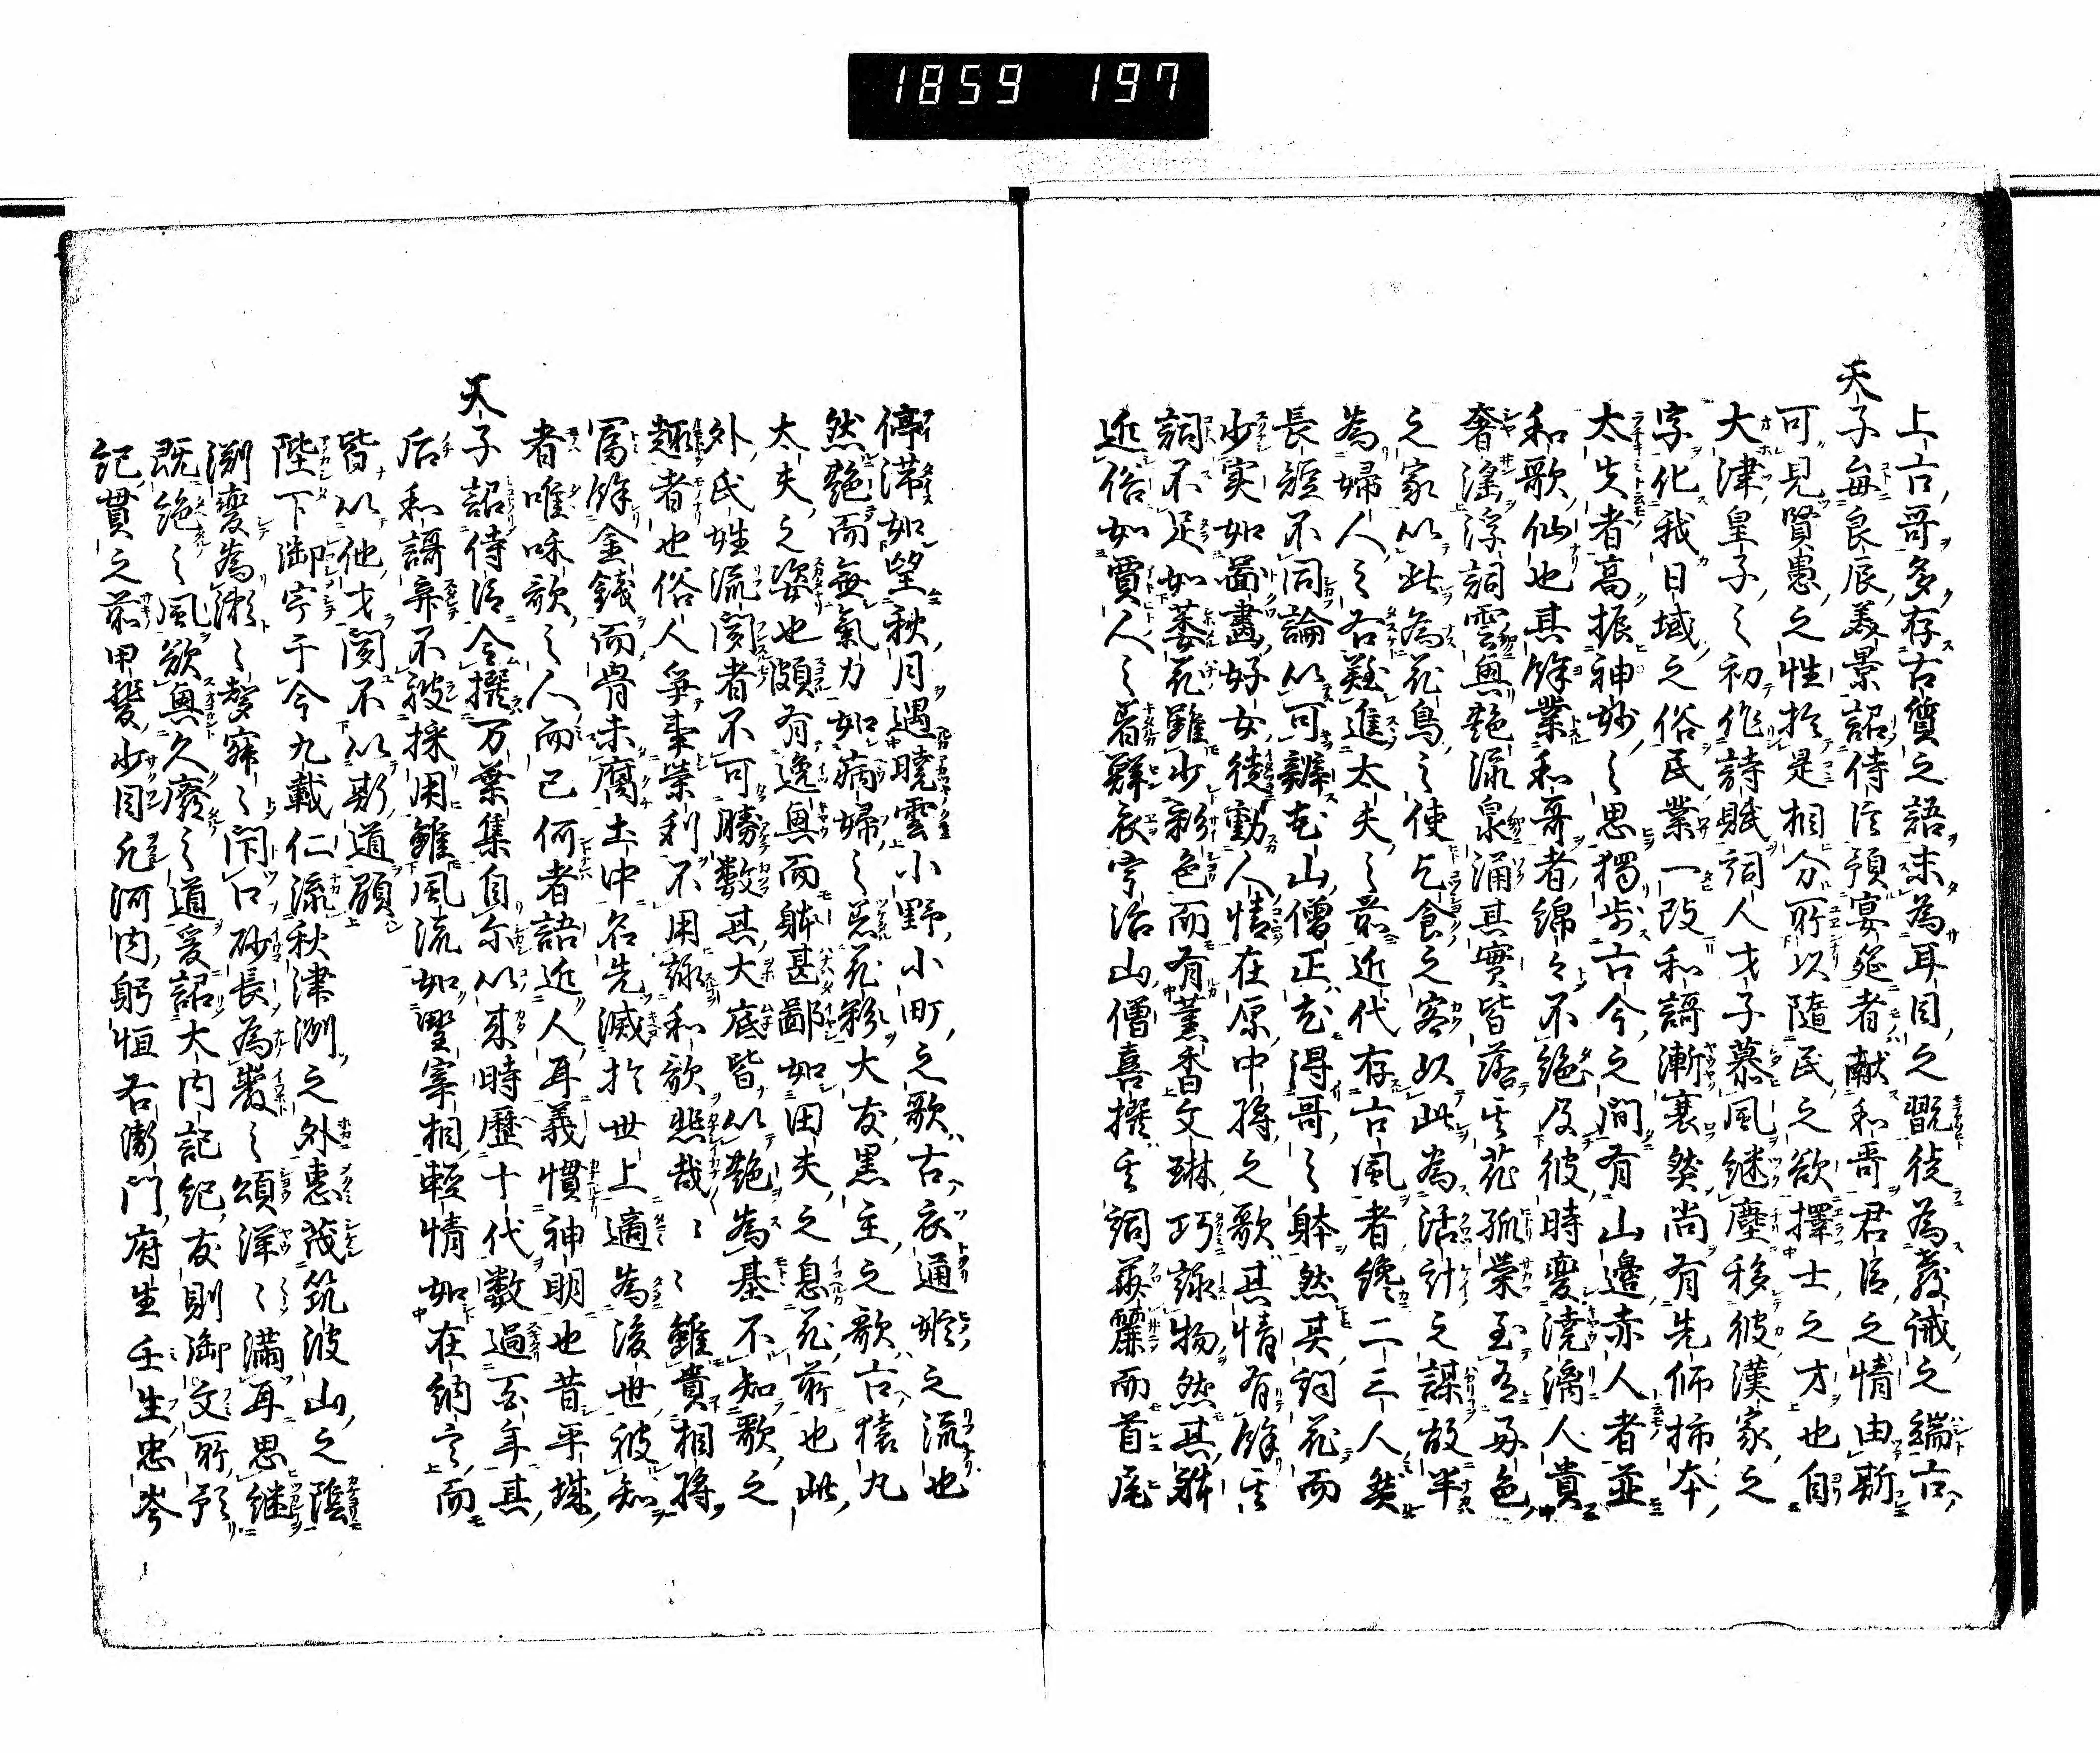 1859 197
上古哥多存古質之語未為耳目之翫徒為教誡之端古
天子每良辰美景詔侍臣預宴筵者献和哥君臣之情由斯
可見賢愚之性於是相分所以隨民之欲擇士之才也自
大津皇子之初作詩賦詞人才子慕風継塵移彼漢家之
字化我日域之俗民業一改和謌漸衰然尚有先師柿本
太夫者高振神妙之思獨步古今之間有山邊赤人者並
和歌仙也其餘業和哥者綿々不絶及彼時變澆漓人貴
奢滛浮詞雲興艶流泉涌其實皆落其花孤榮至有好色
之家以此為花鳥之使乞食之客以此為活計之謀故半
為婦人之右難進太夫之前近代存古風者纔二三人然
長短不同論以可辨花山僧正尤得哥之躰然其詞花而
少実如圖畫好女徒動人情在原中将之歌其情有餘其
詞不足如萎花雖少彩色而有薫香文琳巧詠物然其躰
近俗如賈人之着鮮衣宇治山僧喜撰其詞華麗而首尾
停滞如望秋月遇曉雲小野小町之歌古衣通姫之流也
然艶而無氣力如病婦之着花粉大友黒主之歌古猿丸
太夫之姿也頗有逸興而躰甚鄙如田夫之息花前也此
外氏姓流聞者不可勝数其大底皆以艶為基不知歌之
趣者也俗人争事榮利不用詠和歌悲哉〻雖貴相将
富餘金錢而骨未腐土中名先滅於世上適為後世被知
者唯咊歌之人而已何者語近人耳義慣神明也昔平城
天子詔侍臣令撰万葉集自尓以来時歷十代数過百年其
后和謌弃不被採用雖風流如野宰相輕情如在納言而
皆以他才聞不以斯道顕
陛下御宇于今九載仁流秋津洲之外恵茂筑波山之陰
渕變為瀬之聲寂〻閇口砂長為巖之頌洋〻満耳思継
既絶之風欲興久廢之道爰詔大内記紀友則御文所預
紀貫之前甲斐少目凡河内躬恒右衛門府生壬生忠岑